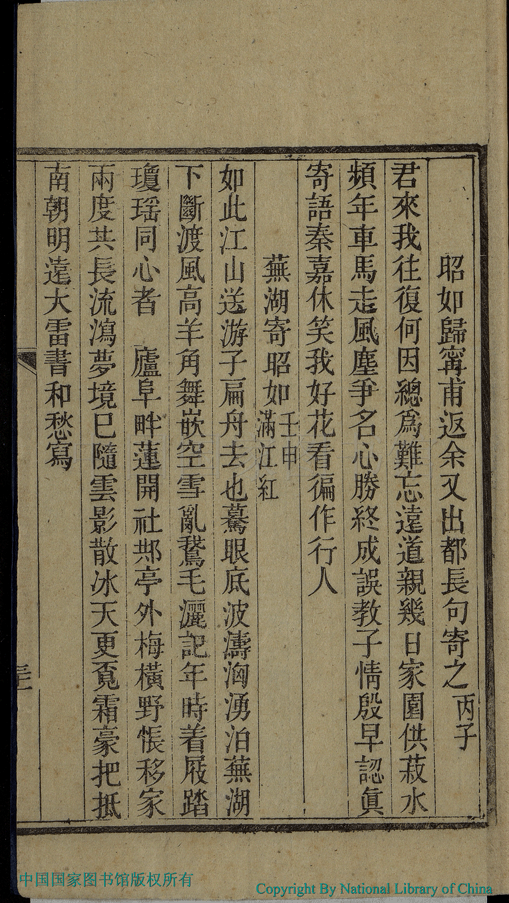 昭如歸寗甫返余又出都長句寄之丙子
君來我往復何因總爲難忘遠道親幾日家園供菽水
頻年車馬走風塵爭名心勝終成誤教子情殷早認眞
寄語秦嘉休笑我好花看徧作行人
蕪湖寄昭如壬申滿江紅
如此江山送游子扁舟去也驀眼底波濤洶湧泊蕪湖
下斷渡風高羊角舞嵌空雪亂鵞毛灑記年時着屐踏
瓊瑶同心者　廬阜畔蓮開社邺亭外梅橫野悵移家
兩度共長流瀉夢境巳隨雲影散冰天更覔霜豪把抵
南朝明遠大雷書和愁寫
中国国家图书馆版权所有
Copyright By National Library of China